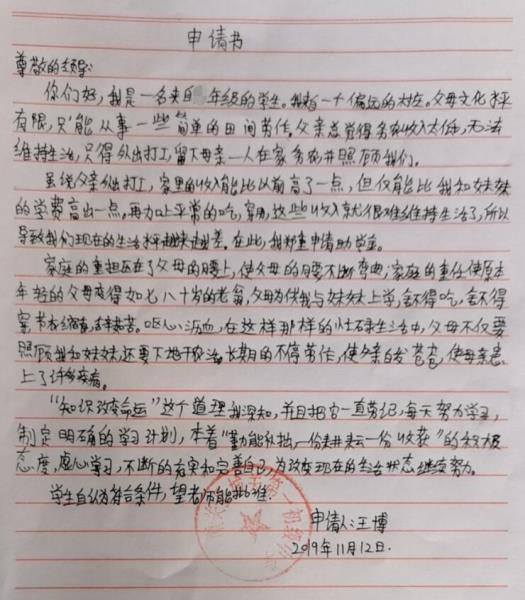 申请书
尊敬的领导:
你们好,我是一名来自年级的学生。我有一个偏远的村庄。父母文化水平
有限,只能从事一些简单的田间劳作,父亲总觉得务农收入太低,无法
维持生活,只得外出打工,留下母亲一人在家务农并照顾我们。
虽说父亲外出打工,家里的收入能比以前高了一点,但仅能比我和妹妹
的学费高出一点。再加上平常的吃,穿用,这些收入就很难维持生活了,所以
导致我们现在的生活水平越来越差。在此,我郑重申请助学金。
家庭的重担压在了父母的腰上,使父母的腰不断弯曲;家庭的责任使原本
年轻的父母变得如七八十岁的老翁,父母为供我与妹妹上学,舍不得吃,舍不得
穿,节衣缩食,含辛茹苦。呕心沥血,在这样那样的忙碌生活中,父母不仅要
照顾我和妹妹,还要下地干农活,长期的不停劳作,使父亲白发苍苍,使母亲患
上了许多疾病。
“知识改变命运”这个道理我深知,并且把它一直劳记,每天努力学习,
制定明确的学习计划,本着“勤能补拙,一份耕耘一份收获”的积极
态度,虚心学习,不断的充实和完善自己,为改变现在的生活状态继续努力。
学生自认为符合条件,望老师能批准.
申请人:王博
2019年11月12日.
第一初级中学